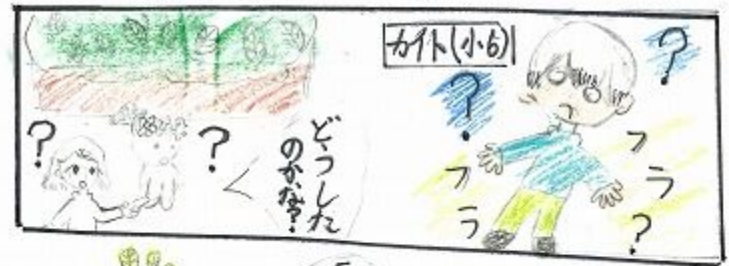 カイト(小6)
?
?
フラ
フラ?
どうした
のかな?
?
?